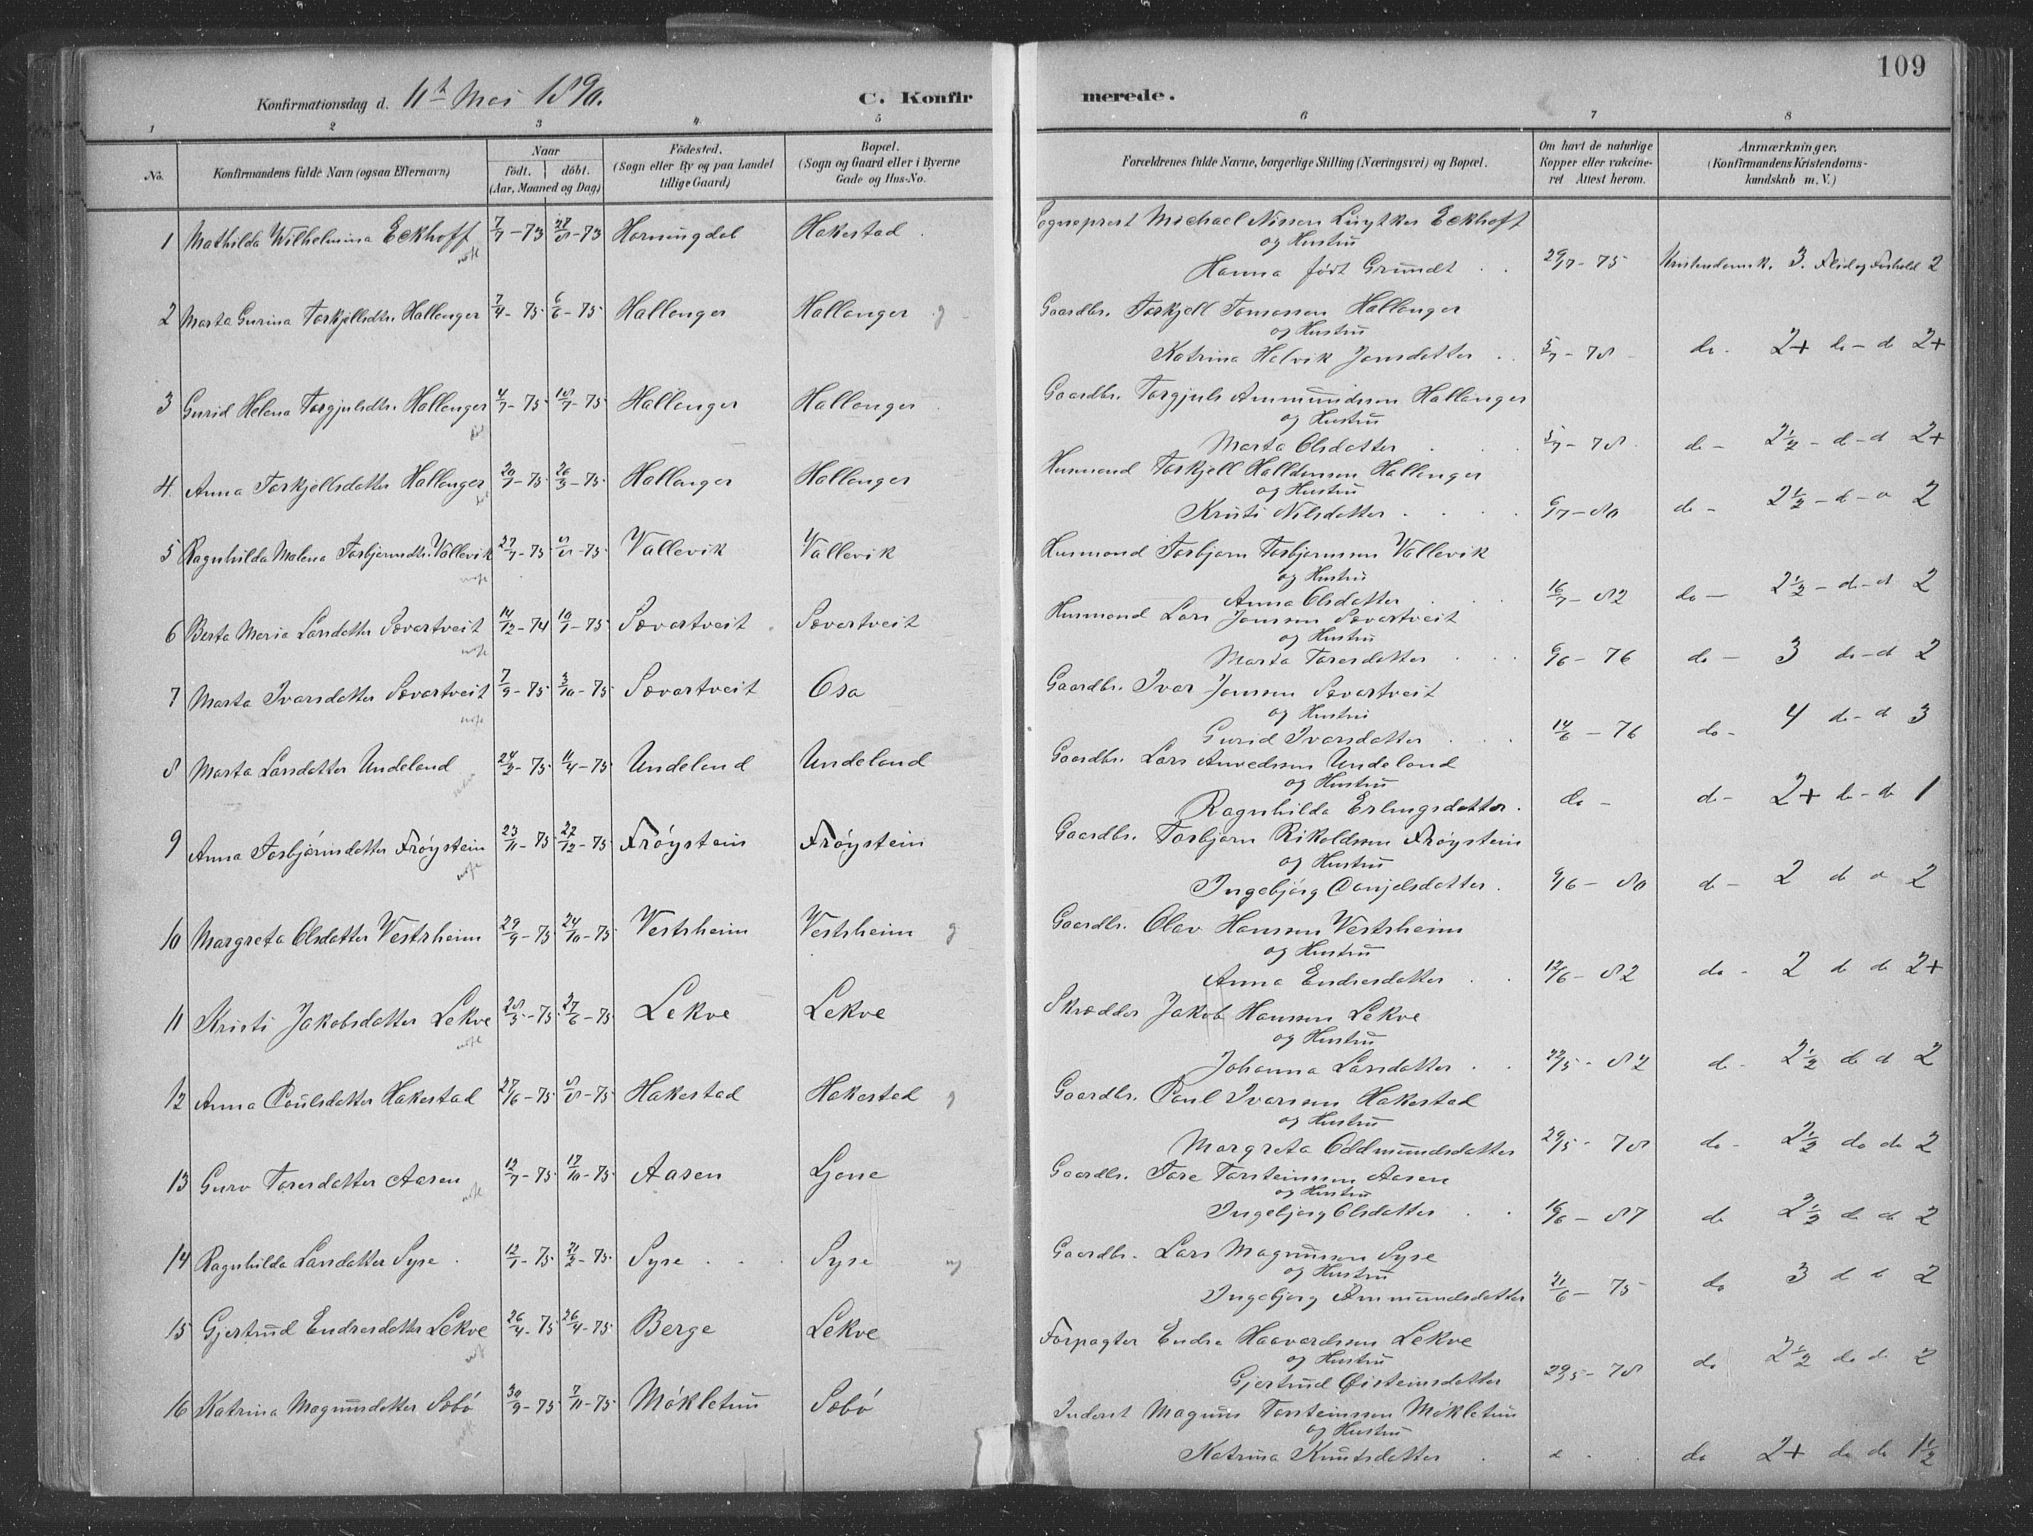 109
Konfirmationsdag d. 11te Mai 1890. C. Konfirmerede.
1 2 3 4. 5 6 7 8
No. Konfirmandens fulde Navn (ogsaa Efternavn) Naar født. døbt. (Aar, Maaned og Dag) Fødested. (Sogn eller By og paa Landet tillige Gaard) Bopæl. (Sogn og Gaard eller i Byerne Gade og Hus-No. Forældrenes fulde Navne, borgerlige Stilling (Næringsvei) og Bopæl. Om havt de naturlige Kopper eller vakcineret Attest herom. Anmærkninger. (Konfirmandens Kristendomskundskab m. V.)
1 Mathilda Wilhelmina Eckhoff 7/7-73 Horningdal Hakestad Sogneprest Michael Nissen Luytkes Eckhoff
og Hustru
Hanna født Grundt 29/7-75 Kristendomsk. 3. Flid og Forhold 2
2 Marta Gurina Torkjellsdtr. Hallanger 7/4-75 6/6-75 Hallanger Hallanger Gaardbr. Torkjell Tomassen Hallanger
og Hustru
Katrina Helvik Jonsdatter 5/7-78 do- 2+ do-d 2+
3 Gurid Helena Torgjulsdtr. Hallanger 4/7-75 18/7-75 Hallanger Hallanger Gaardbr. Torgjuls Ammundssen Hallanger
og Hustru
Marta Olsdatter 5/7-78 do- 2½-d-d 2+
4. Anna Torkjellsdatter Hallanger 26/3-75 Hallanger Hallanger Husmand Torkjell Halldorsen Hallanger
og Hustru
Kristi Nilsdatter 6/7-80 do- 2½-d-d 2
5 Ragnhilda Malena Torbjørnsdtr. Vallevik 27/7-75 Vallevik Vallevik Husmand Torbjørn Torbjørnssen Vallevik
og Hustru
Anna Olsdatter 16/7-82 do- 2½-d-d 2
6 Berta Maria Larsdatter Sævartveit 14/12-74 10/1-75 Sævartveit Sævartveit Husmand Lars Jonssen Sævartveit
og Hustru
Marta Toresdatter 6/6-76 do- 3 do-d 2
7 Marta Ivarsdatter Sævartveit 7/9-75 3/10-75 Sævartveit Osa Gaardbr. Ivar Jonssen Sævartveit
og Hustru
Gurid Ivarsdatter 14/6-76 do- 4 do-d 3
8 Marta Larsdatter Undeland 11/4-75 Undeland Undeland Gaardbr. Lars Amvedssen Undeland
og Hustru
Ragnhilda Erlingsdatter. do- do- 2+ do-do 1
9 Anna Torbjørnsdatter Frøystein 23/11-75 27/12-75 Frøystein Frøystein Gaardbr. Torbjørn Rikoldssen Frøystein
og Hustru
Ingebjørg Danjelsdatter. 9/6-80 do- 2 d d 2
10 Margreta Olsdatter Vestrheim 29/9-75 24/10-75 Vestrheim Vestrheim Gaardbr. Olav Hanssen Vestrheim
og Hustru
Anna Endresdatter 12/6-82 do- 2 d do 2+
11 Kristi Jakobsdatter Lekve 28/5-75 27/6-75 Lekve Lekve Skrædder Jakob Hanssen Lekve
og Hustru
Johanna Larsdatter 22/5-82 do- 2½ do d 2
12 Anna Poulsdatter Hakestad 27/6-75 8/8-75 Hakestad Hakestad Gaardbr. Poul Ivarssen Hakestad
og Hustru
Margreta Oddmundsdatter 29/5-78 do- 2½ do do 2
13 Guro Toresdatter Aasen 12/9-75 17/10-75 Aasen Ljone Gaardbr. Tore Torsteinssen Aasen
og Hustru
Ingebjørg Olsdatter 16/6-87 do 2½ do do 2
14 Ragnhilda Larsdatter Syse 12/1-75 21/2-75 Syse Syse Gaardbr. Lars Magnussen Syse
og Hustru
Ingebjørg Ammundsdatter 21/6-75 do 3 d d 2
15 Gjertrud Endresdatter Lekve 26/4-75 Berge Lekve Forpagter Endre Haavardssen Lekve
og Hustru
Gjertrud Øisteinsdatter 29/5-78 do 2½ do do 2
16 Katrina Magnusdatter Sæbø 30/9-75 7/11-75 Møkletun Sæbø Inderst Magnus Torsteinssen Møkletun
og Hustru
Katrina Knutsdatter do 2+ do do 1½